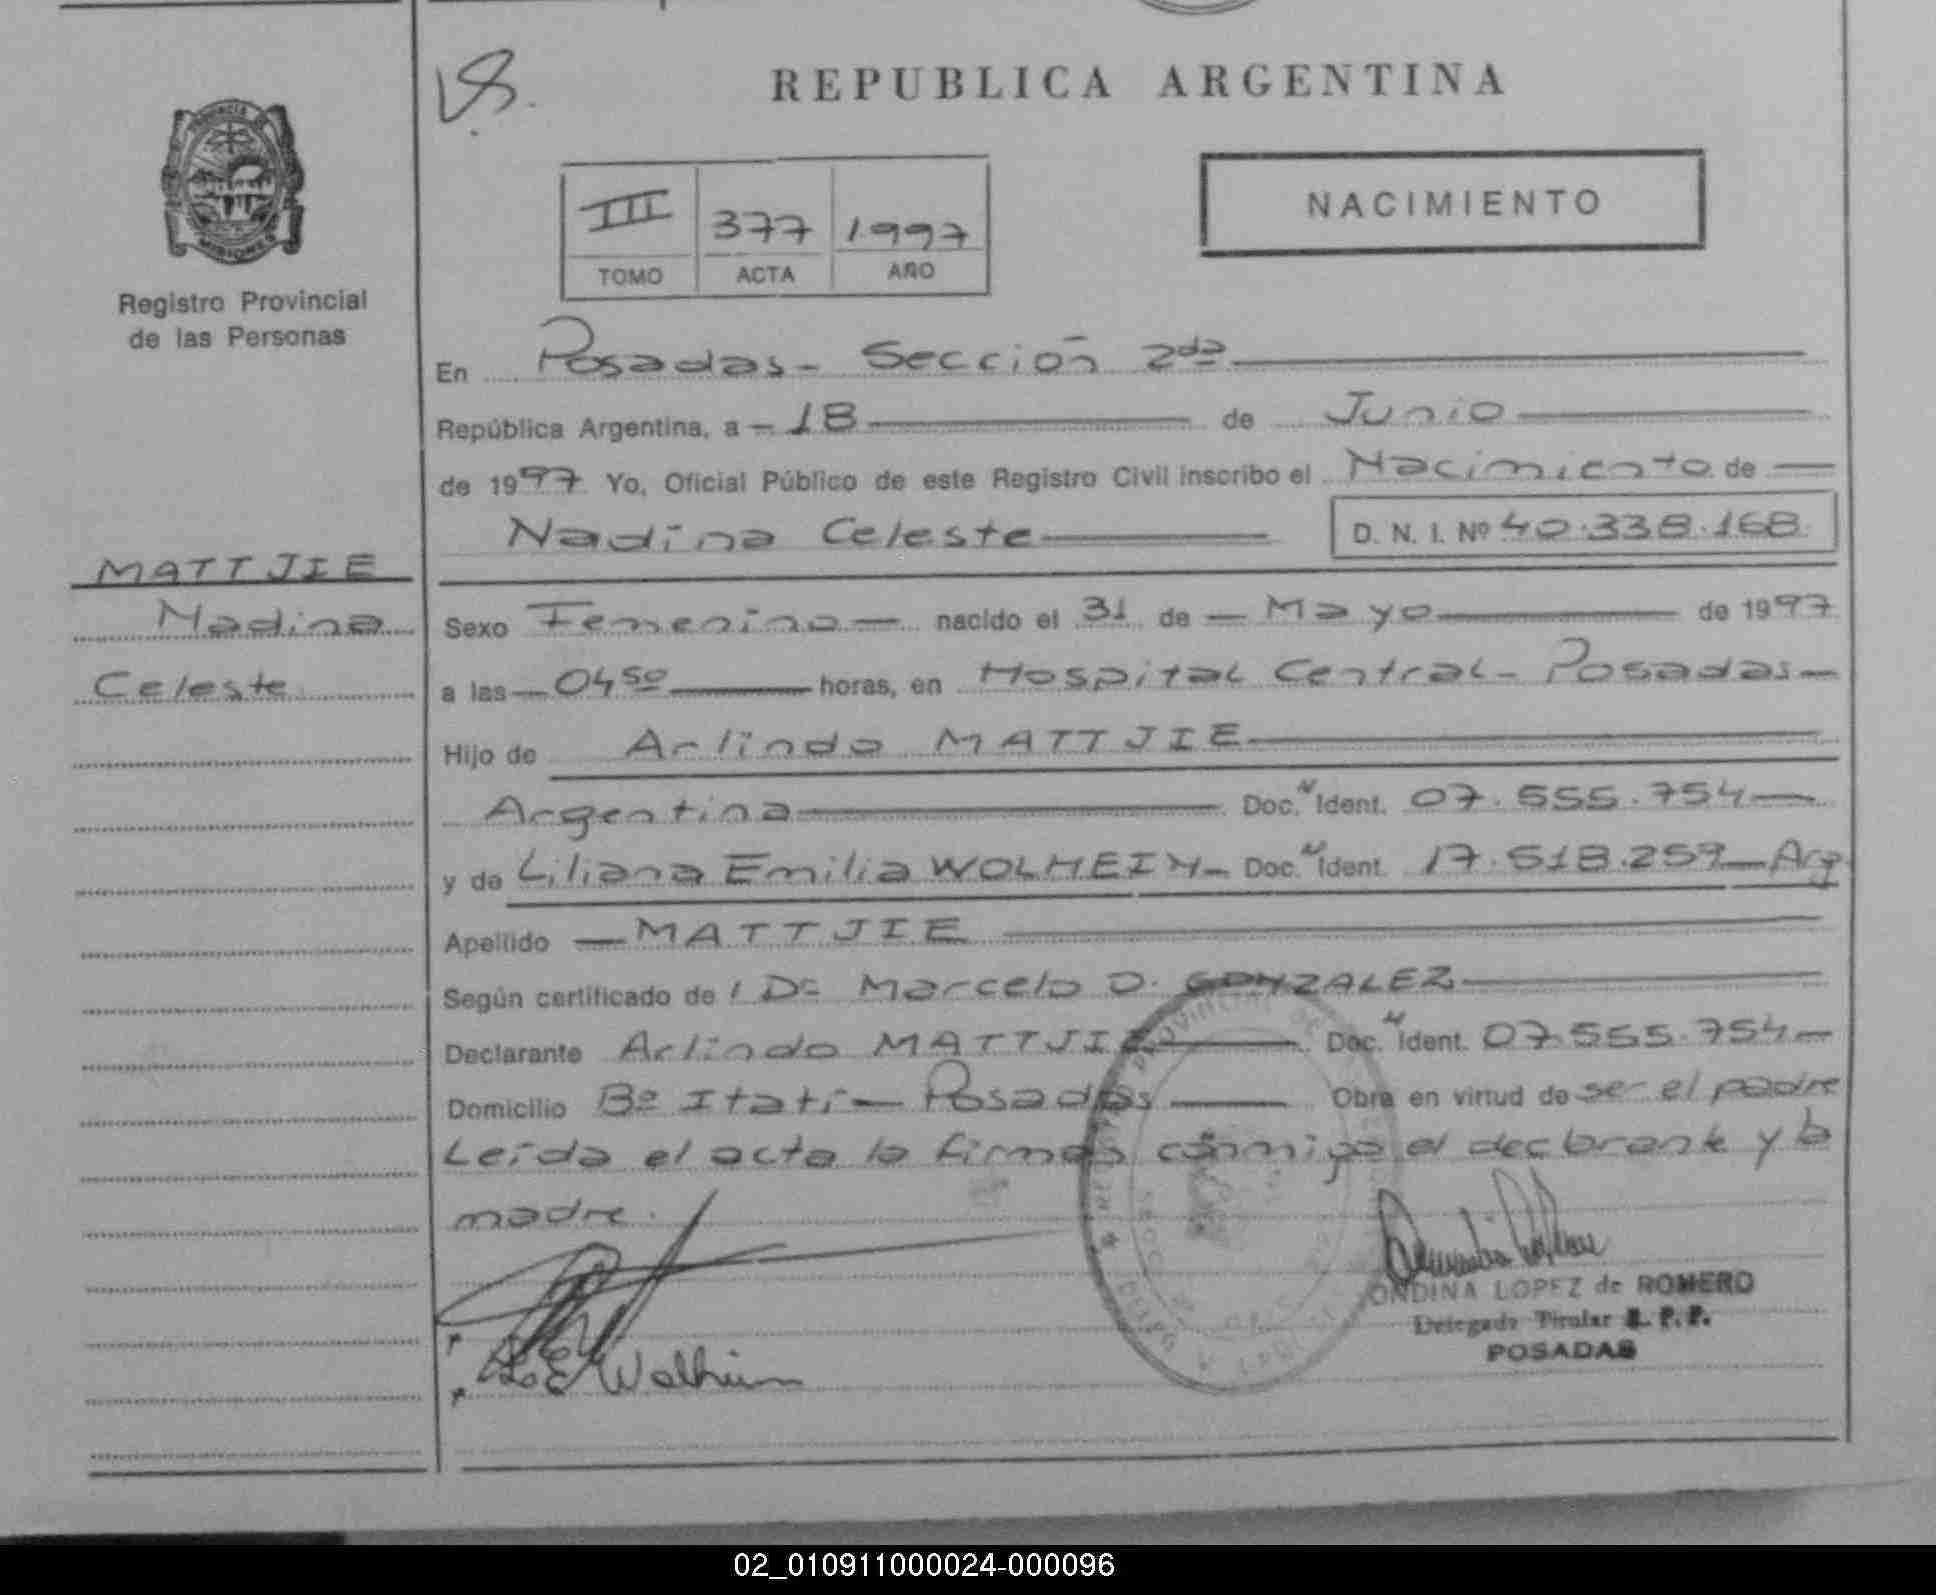 REPUBLICA ARGENTINA
NACIMIENTO
III 377 1997
TOMO ACTA AÑO
Registro Provincial
de las Personas
En Posadas - Sección 2da
República Argentina, a - 18 de Junio
de 1997 Yo, Oficial Público de este Registro Civil inscribo el Nacimiento de
Nadina Celeste D. N. I. Nº 40.338.168
MATTJIE
Nadina
Celeste
Sexo Femenino - nacido el 31 de - Mayo de 1997
a las - 04 50 horas, en Hospital Central - Posadas -
Hijo de Arlindo MATTJIE
Argentina Doc. Ident. 07.555.754 -
y de Liliana Emilia WOLHEIM - Doc. Ident. 17.518.259 - Arg
Apellido - MATTJIE
Según certificado de / Dr Marcelo D. GONZALEZ
Declarante Arlindo MATTJIE Doc. Ident. 07.555.754 -
Domicilio Bº Itatí - Posadas Obra en virtud de ser el padre
Leída el acta la firman conmigo el declarante y la
madre.
L E Wolheim
ONDINA LOPEZ de ROMERO
Delegada Titular R. P. P.
POSADAS
02_010911000024-000096